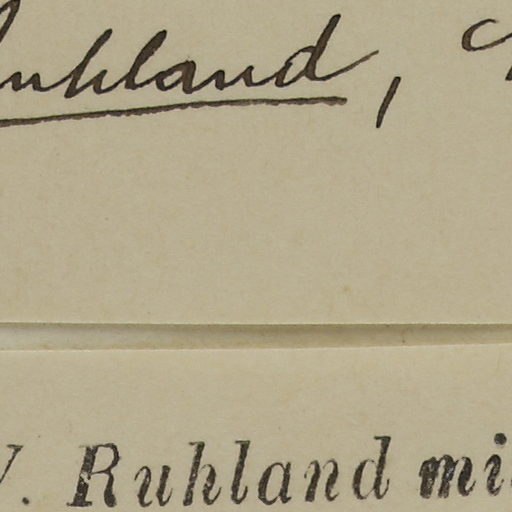 Ruhland,
W. Ruhland